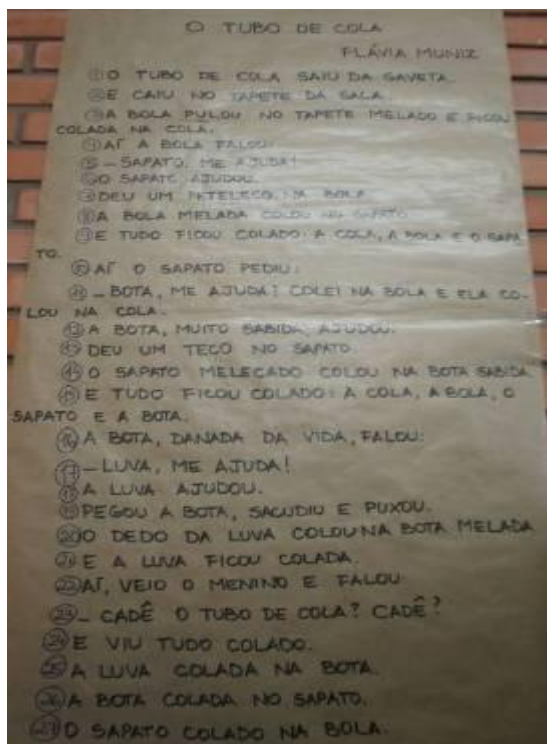 O TUBO DE COLA
FLÁVIA MUNIZ
① O TUBO DE COLA SAIU DA GAVETA.
② E CAIU NO TAPETE DA SALA.
③ A BOLA PULOU NO TAPETE MELADO E FICOU
COLADA NA COLA.
④ AÍ A BOLA FALOU:
⑤ – SAPATO, ME AJUDA!
⑥ O SAPATO AJUDOU.
⑦ DEU UM PETELECO NA BOLA.
⑧ A BOLA MELADA COLOU NO SAPATO.
⑨ E TUDO FICOU COLADO: A COLA, A BOLA E O SAPA-
TO.
⑩ AÍ O SAPATO PEDIU:
⑪ – BOTA, ME AJUDA! COLEI NA BOLA E ELA CO-
LOU NA COLA.
⑫ A BOTA, MUITO SABIDA, AJUDOU.
⑬ DEU UM TECO NO SAPATO.
⑭ O SAPATO MELECADO COLOU NA BOTA SABIDA.
⑮ E TUDO FICOU COLADO: A COLA, A BOLA, O
SAPATO E A BOTA.
⑯ A BOTA, DANADA DA VIDA, FALOU:
⑰ – LUVA, ME AJUDA!
⑱ A LUVA AJUDOU.
⑲ PEGOU A BOTA, SACUDIU E PUXOU.
⑳ O DEDO DA LUVA COLOU NA BOTA MELADA
㉑ E A LUVA FICOU COLADA.
㉒ AÍ, VEIO O MENINO E FALOU:
㉓ – CADÊ O TUBO DE COLA? CADÊ?
㉔ E VIU TUDO COLADO.
㉕ A LUVA COLADA NA BOTA.
㉖ A BOTA COLADA NO SAPATO.
㉗ O SAPATO COLADO NA BOLA.